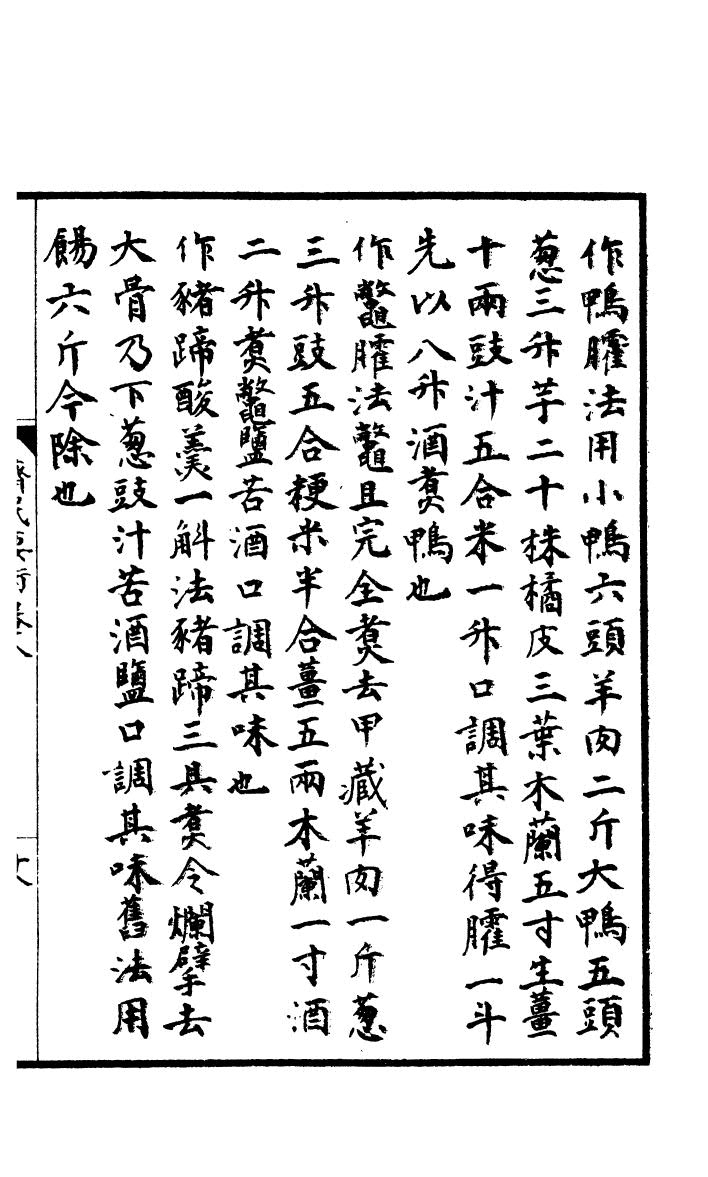 作鴨臛法用小鴨六頭羊肉二斤大鴨五頭
葱三升芋二十株橘皮三葉木蘭五寸生薑
十兩豉汁五合米一升口調其味得臛一斗
先以八升酒煑鴨也
作鼈臛法鼈且完全煑去甲藏羊肉一斤葱
三升豉五合粳米半合薑五兩木蘭一寸酒
二升煑鼈鹽苦酒口調其味也
作豬蹄酸羹一斛法豬蹄三具煑令爛擘去
大骨乃下葱豉汁苦酒鹽口調其味舊法用
餳六斤今除也
齊民要術卷八